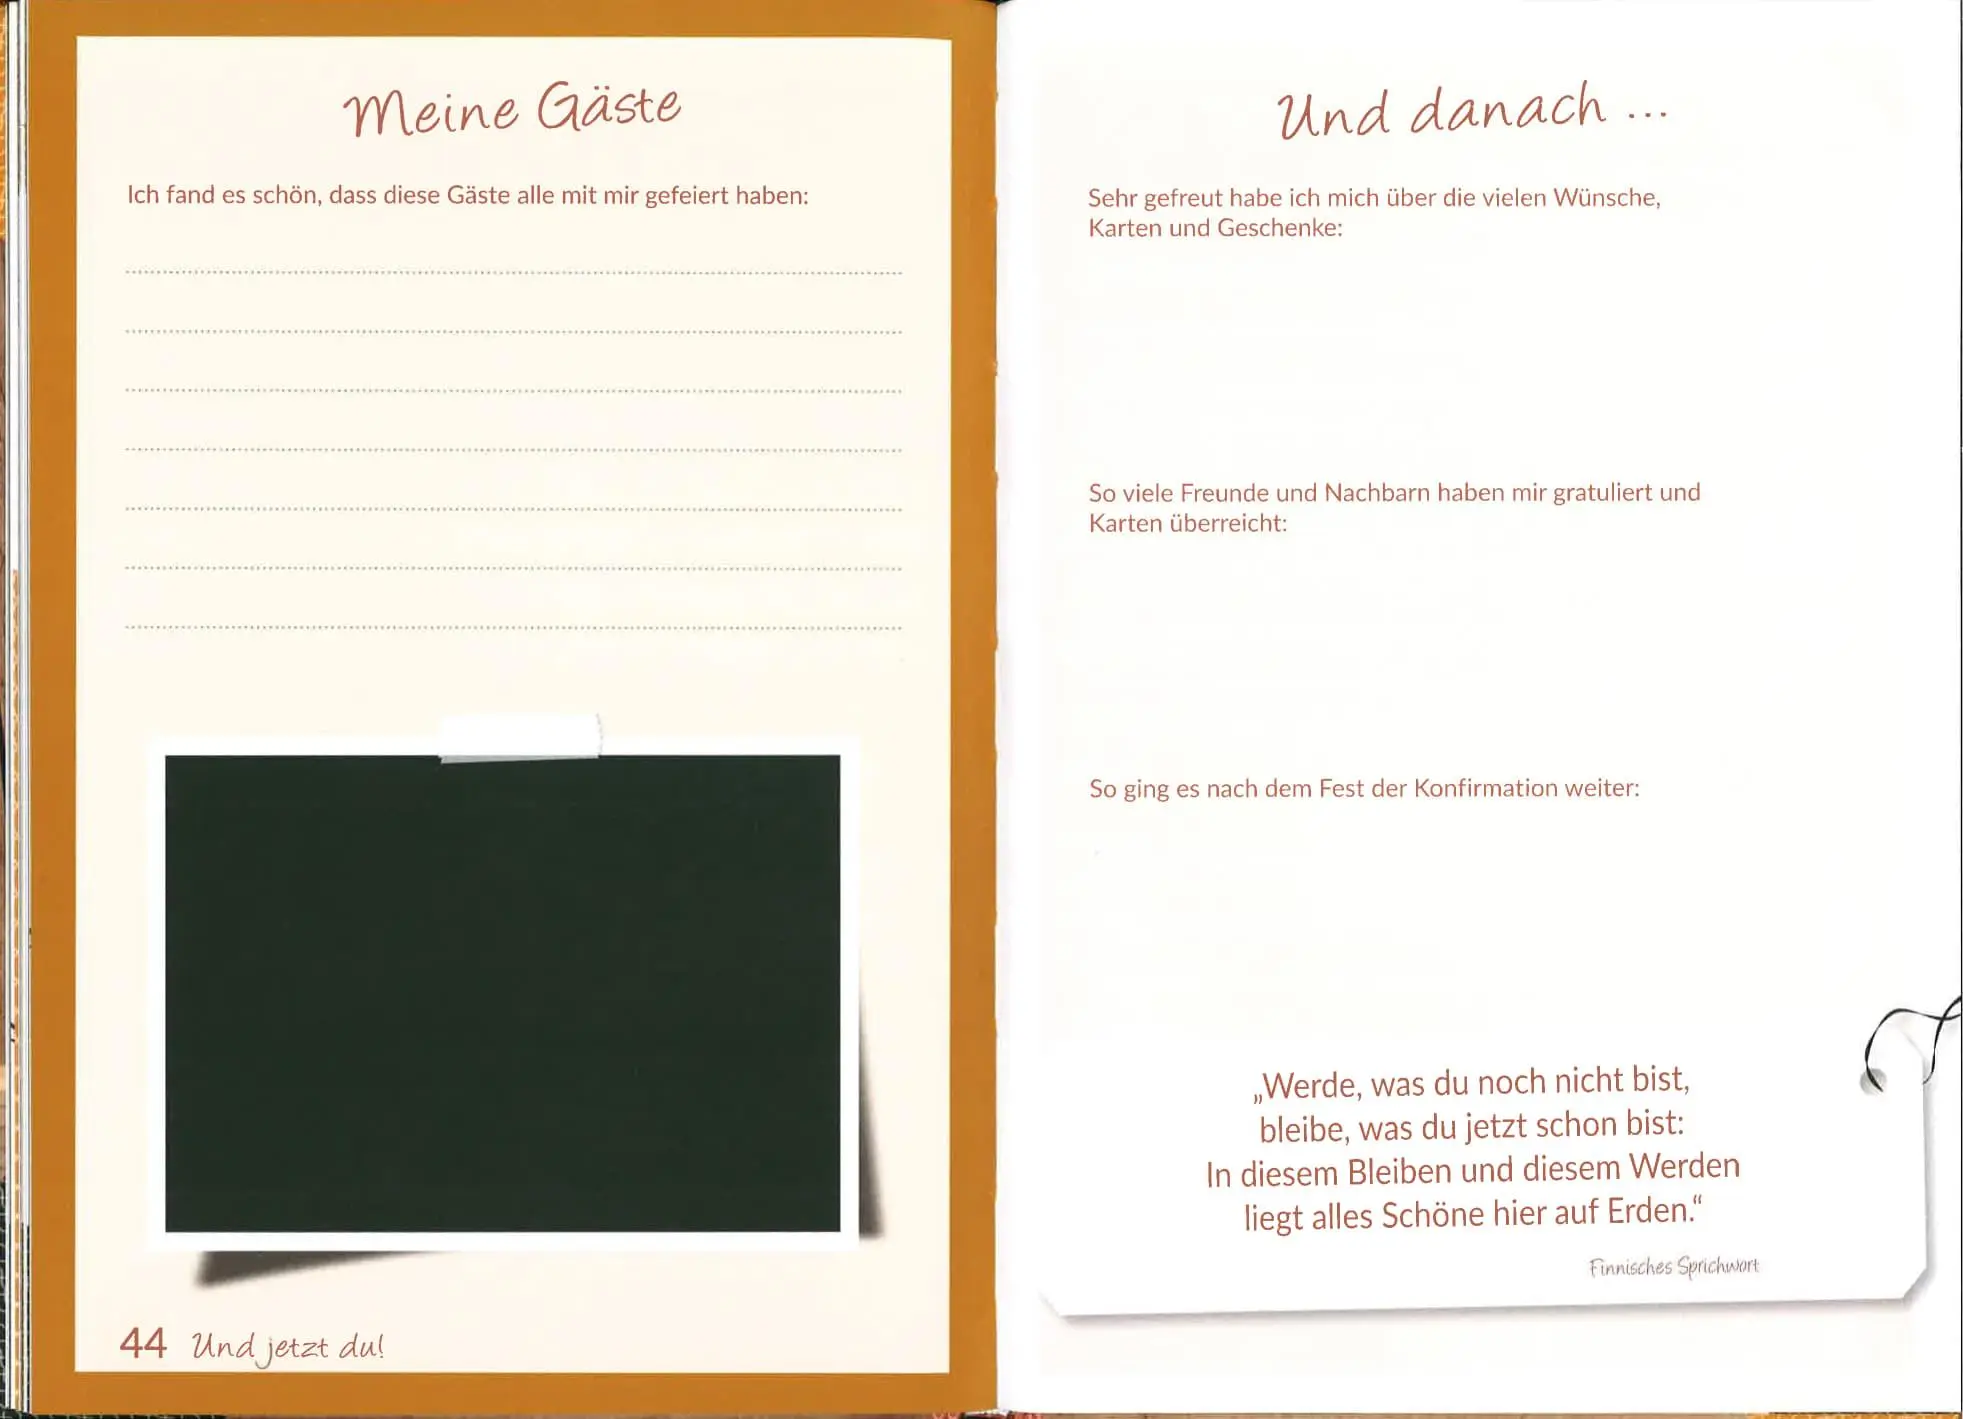 Meine Gäste
Ich fand es schön, dass diese Gäste alle mit mir gefeiert haben:
44 Und jetzt du!
Und danach ...
Sehr gefreut habe ich mich über die vielen Wünsche,
Karten und Geschenke:
So viele Freunde und Nachbarn haben mir gratuliert und
Karten überreicht:
So ging es nach dem Fest der Konfirmation weiter:
„Werde, was du noch nicht bist,
bleibe, was du jetzt schon bist:
In diesem Bleiben und diesem Werden
liegt alles Schöne hier auf Erden.“
Finnisches Sprichwort